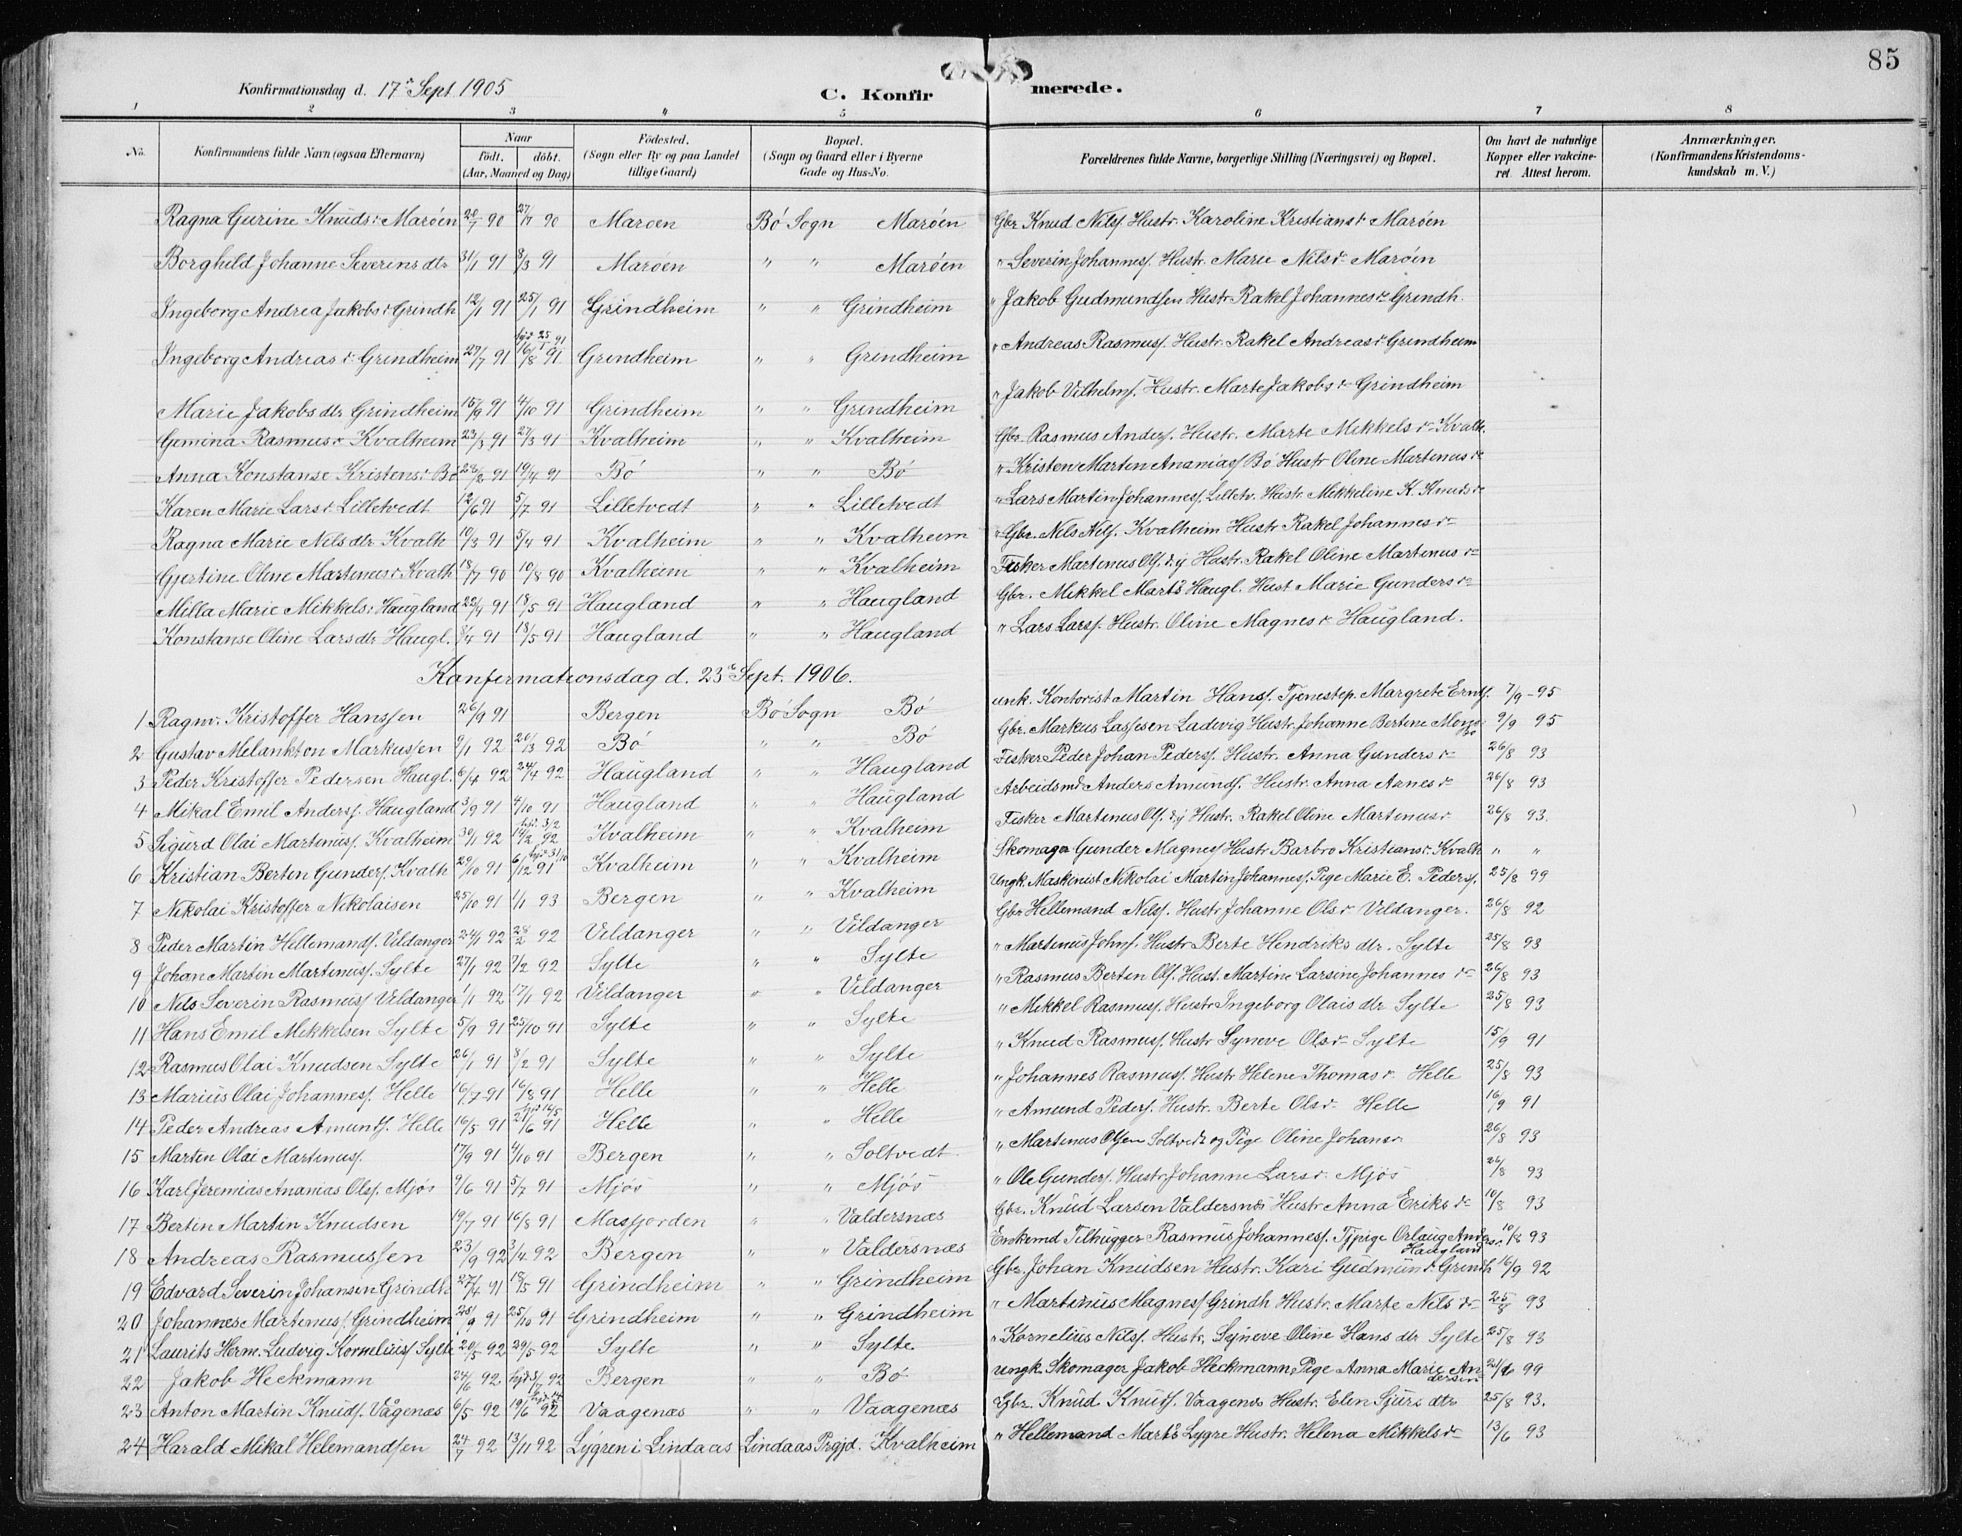 85
Konfirmationsdag d. 17de Sept 1905 C. Konfir merede.
1 2 3 4 5 6 7 8
No. Konfirmandens fulde Navn (ogsaa Efternavn) Naar født. døbt. (Aar, Maaned og Dag) Fødested. (Sogn eller By og paa Landet tillige Gaard) Bopæl. (Sogn og Gaard eller i Byerne Gade og Hus-No. Forældrenes fulde Navne, borgerlige Stilling (Næringsvei) og Bopæl. Om havt de naturlige Kopper eller vakcineret. Attest herom. Anmærkninger. (Konfirmandens Kristendomskundskab m. V.)
Ragna Gurine Knudsdr Marøen 20/7 90 27/7 90 Maroen Bö Sogn Maröen Gbr Knud Nilss. Hustr. Karoline Kristiansdr Maröen
Borghild Johanne Severins dtr 31/1 91 8/3 91 Maröen " " Maröen " Severin Johanness. Hustr. Marie Nilsdr Maröen
Ingeborg Andrea Jakobsdr Grindh 12/1 91 25/1 91 Grindheim " " Grindheim " Jakob Gudmundsen Hustr. Rakel Johannesdr Grindh.
Ingeborg Andreasdr Grindheim 29/7 91 16/8 91 Grindheim " " Grindheim " Andreas Rasmuss. Hustr. Rakel Andreasdr Grindheim
Marie Jakobs dtr Grindheim 15/9 91 4/10 91 Grindheim " " Grindheim " Jakob Vilhelms. Hustr. Marte Jakobsdr Grindheim
Gemina Rasmusdr Kvalheim 23/3 91 27/3 91 Kvalheim " " Kvalheim Gbr. Rasmus Anders. Hustr. Marte Mikkelsdr Kvalh.
Anna Konstanse Kristensdr Bö 28/2 91 19/4 91 Bö " " Bö " Kristen Marten Ananiass Bö Hustr Oline Martinusdr
Karen Marie Larsdr Lilletvedt 12/6 91 5/7 91 Lilletvedt " " Lilletvedt " Lars Martin Johanness. Lilletv. Hustr. Mikkeline K. Knudsdr
Ragna Marie Nils dtr Kvalh 10/3 91 5/4 91 Kvalheim " " Kvalheim " Gbr. Nils Nilss. Kvalheim Hustr Rakel Johannesdr
Gjertine Oline Martinusdr Kvalh 18/7 90 10/8 90 Kvalheim " " Kvalheim Fisker Martinus Ols. d.y Hustr. Rakel Oline Martinusdr
Milla Marie Mikkelsdr Haugland 25/4 91 18/5 91 Haugland " " Haugland Gbr. Mikkel Marts Haugl. Hust Marie Gundersdr
Konstanse Oline Lars dtr Haugl. 8/4 91 18/5 91 Haugland " " Haugland " Lars Larss. Hustr. Oline Magnesdr Haugland.
Konfirmationsdag d. 23de Sept. 1906.
1 Ragnv. Kristoffer Hanssen 26/9 91 Bergen Bö Sogn Bö unk. Kontorist Martin Hanss. Tjenestep. Margrete Ernts. 7/9 - 95
2 Gustav Melankton Markussen 9/1 92 20/3 92 Bö " " Bö Gbr. Markus Lassesen Ladvig Hustr. Johanne Bertine Mons. Bö 9/9 95
3 Peder Kristoffer Pedersen Haugl. 6/4 92 24/4 92 Haugland " " Haugland Fisker Peder Johan Peders. Hustr. Anna Gundersdr 26/8 93
4 Mikal Emil Anderss. Haugland 3/9 91 4/10 91 Haugland " " Haugland Arbeidsmd Anders Amunds. Hustr. Anna Arnesdr 26/8 93
5 Sigurd Olai Martinuss. Kvalheim 30/1 92 14/2 92 Kvalheim " " Kvalheim Fisker Martinus Ols. d.y Hustr. Rakel Oline Martinusdr 26/8 93.
6 Kristian Berten Gunders. Kvalh 29/10 91 6/12 91 Kvalheim " " Kvalheim Skomager Gunder Magness Hustr Barbro Kristiansdr Kvalh " "
7 Nikolai Kristoffer Nikolaisen 25/10 91 1/1 93 Bergen " " Kvalheim Ungk. Maskinist Nikolai Martin Johanness. Pige Marie E. Peders. 25/8 99
8 Peder Martin Hellemands. Vildanger 24/1 92 28/2 92 Vildanger " " Vildanger Gbr Hellemand Nilss. Hustr Johanne Olsdr Vildanger. 26/8 92
9 Johan Martin Martinuss. Sylte 27/1 92 7/2 92 Sylte " " Sylte " Martinus Johns. Hustr Berte Hendriks dtr. Sylte 25/8 93
10 Nils Severin Rasmuss Vildanger 1/1 92 17/1 92 Vildanger " " Vildanger " Rasmus Berten Ols. Hust. Martine Larsine Johannesdr 26/8 93
11 Hans Emil Mikkelsen Sylte 5/9 91 25/10 91 Sylte " " Sylte " Mikkel Rasmuss. Hustr Ingeborg Olais dtr Sylte 25/8 93
12 Rasmus Olai Knudsen Sylte 26/1 91 8/2 91 Sylte " " Sylte " Knud Rasmuss. Hustr Syneve Olsdr Sylte 15/9 91
13 Marius Olai Johanness. Helle 16/7 91 16/8 91 Helle " " Helle " Johannes Rasmuss. Hustr Helene Thomasdr Helle 25/8 93
14 Peder Andreas Amunds. Helle 16/5 91 21/6 91 Helle " " Helle " Amund Peders. Hustr. Berte Olsdr Helle 16/9 91
15 Marten Olai Martinuss. 17/9 91 4/10 91 Bergen " " Soltvedt. " Martinus Olsen Soltvedt og Pige Oline Johansdr 26/8 93
16 Karl Jeremias Ananias Olss. Mjös 9/6 91 5/7 91 Mjös " " Mjös " Ole Gunders. Hustr Johanne Larsdr Mjös 26/8 93
17 Bertin Martin Knudsen 19/7 91 16/8 91 Masfjorden " " Valdersnæs Gbr. Knud Larsen Valdersnæs Hustr Anna Eriksdr 10/8 93
18 Andreas Rasmussen 23/9 92 3/4 92 Bergen " " Valdersnæs Enkemd Tilhugger Rasmus Johanness. Tjpige Orlaug Andersdr Haugland 10/8 93
19 Edvard Severin Johansen Grindh. 27/4 91 18/5 91 Grindheim " " Grindheim Gbr. Johan Knudsen Hustr. Kari Gudmundr Grindh 16/9 92
20 Johannes Martinuss. Grindheim 28/9 91 25/10 91 Grindheim " " Grindheim " Martinus Magness Grindh Hustr. Marte Nilsdr 25/8 93
21 Laurits Herm. Ludvig Korneliuss Sylte 20/5 92 29/5 92 Sylte " " Sylte. " Kornelius Nilss. Hustr. Syneve Oline Hans dtr Sylte 25/8 93
22 Jakob Heckmann 24/6 92 92 Bergen " " Bö ungk. Skomager Jakob Heckmann, Pige Anna Marie Andersen 99
23 Anton Martin Knuds. Vågenæs 6/5 92 19/6 92 Vaagenæs " " Vaagenæs Gbr. Knud Knuts. Vaagenæs Hustr. Elen Sjurs dtr 25/8 93.
24 Harald Mikal Helemandsen 24/7 92 13/11 92 Lygren i Lindaas Lindaas Prgjd. Kvalheim " Hellemand Marts Lygre Hustr. Helena Mikkelsdr 13/6 93